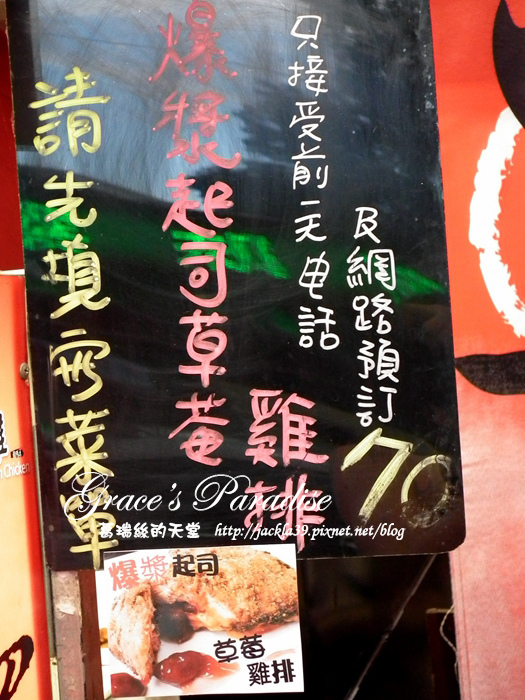 爆漿起司草莓
雞排
70
只接受前一天电話
及網路預訂
請先填寫菜單
Grace's Paradise
葛瑞絲的天堂 http://jackla39.pixnet.net/blog
爆漿起司
草莓
雞排
Chicken